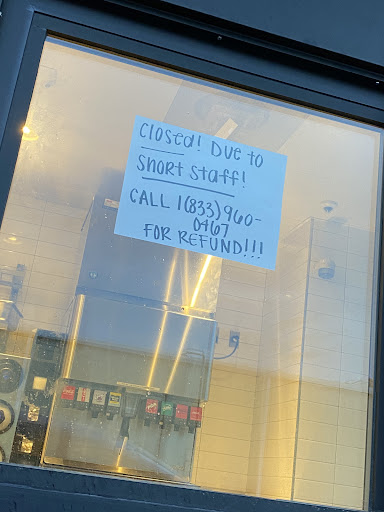 Closed! Due to
Short staff!
CALL 1(833)960-
0467
FOR REFUND!!!